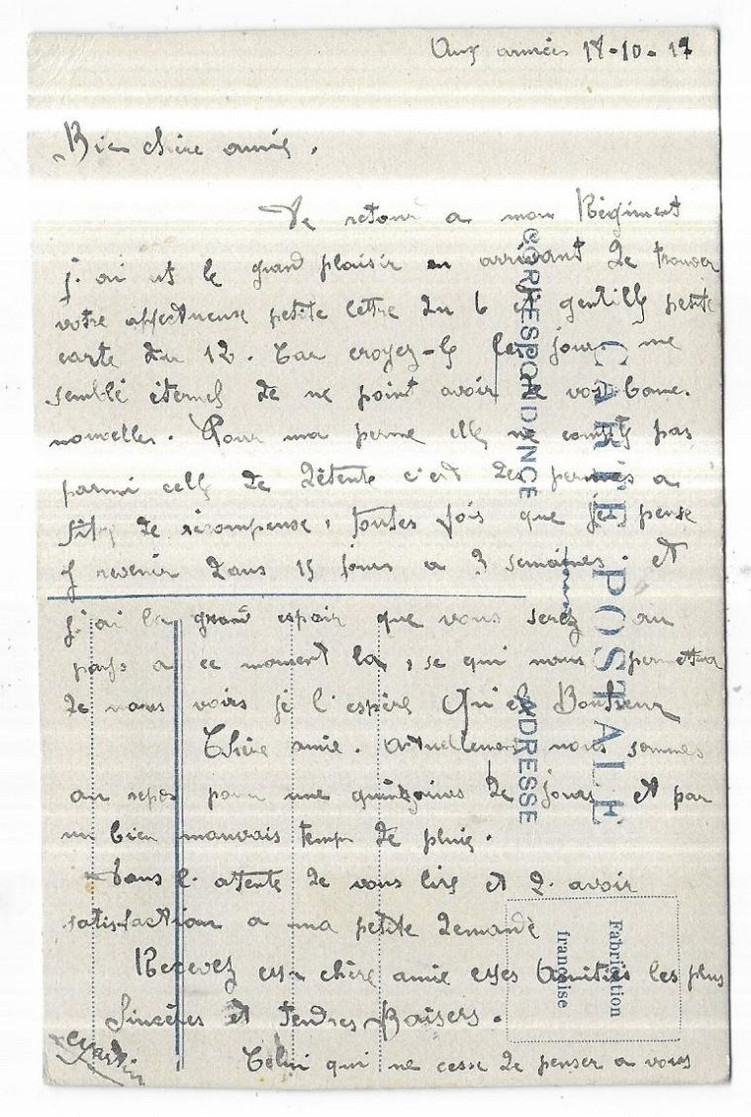 Aux armées 18-10-17
Bien chère amie.
De retour a mon Régiment
j. ai ut le grand plaisir en arrivant de trouver
votre affectueuse petite lettre du 6 et gentille petite
carte du 12. Car croyez-le les jours me
semble éternel de ne point avoir de vos bonne.
nouvelles. Pour ma perme elle ne compte pas
parmi celle de détente c'est des permes a
titre de récompense, toutes fois que je pense
y revenir dans 15 jours a 3 semaines. et
j. ai le grand espoir que vous serez au
pays a ce moment la, se qui nous permettra
de nous voirs je l'espère Quel Bonheur
Chère amie. actuellement nous sommes
au repos pour une quinzaine de jours et par
un bien mauvais temps de pluie.
Dans l. attente de vous lire et d. avoir
satisfaction a ma petite demande
Recevez chère amie mes Amitiés les plus
Sincères et tendres Baisers.
Celui qui ne cesse de penser a vous
CARTE POSTALE
CORRESPONDANCE
ADRESSE
Fabrication
française